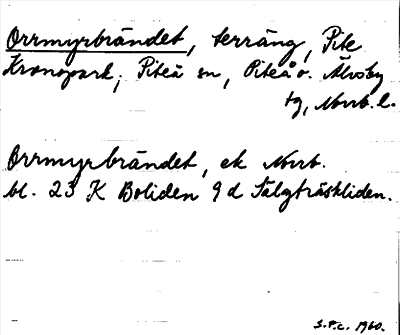 Orrmyrbrändet, terräng, Pite
Kronopark, Piteå sn, Piteå o. Älvsby
tg, Norrb. l.
Orrmyrbrändet, ek Norrb.
bl. 23 K Boliden 9 d Sälgträskliden.
S.F.C. 1960.